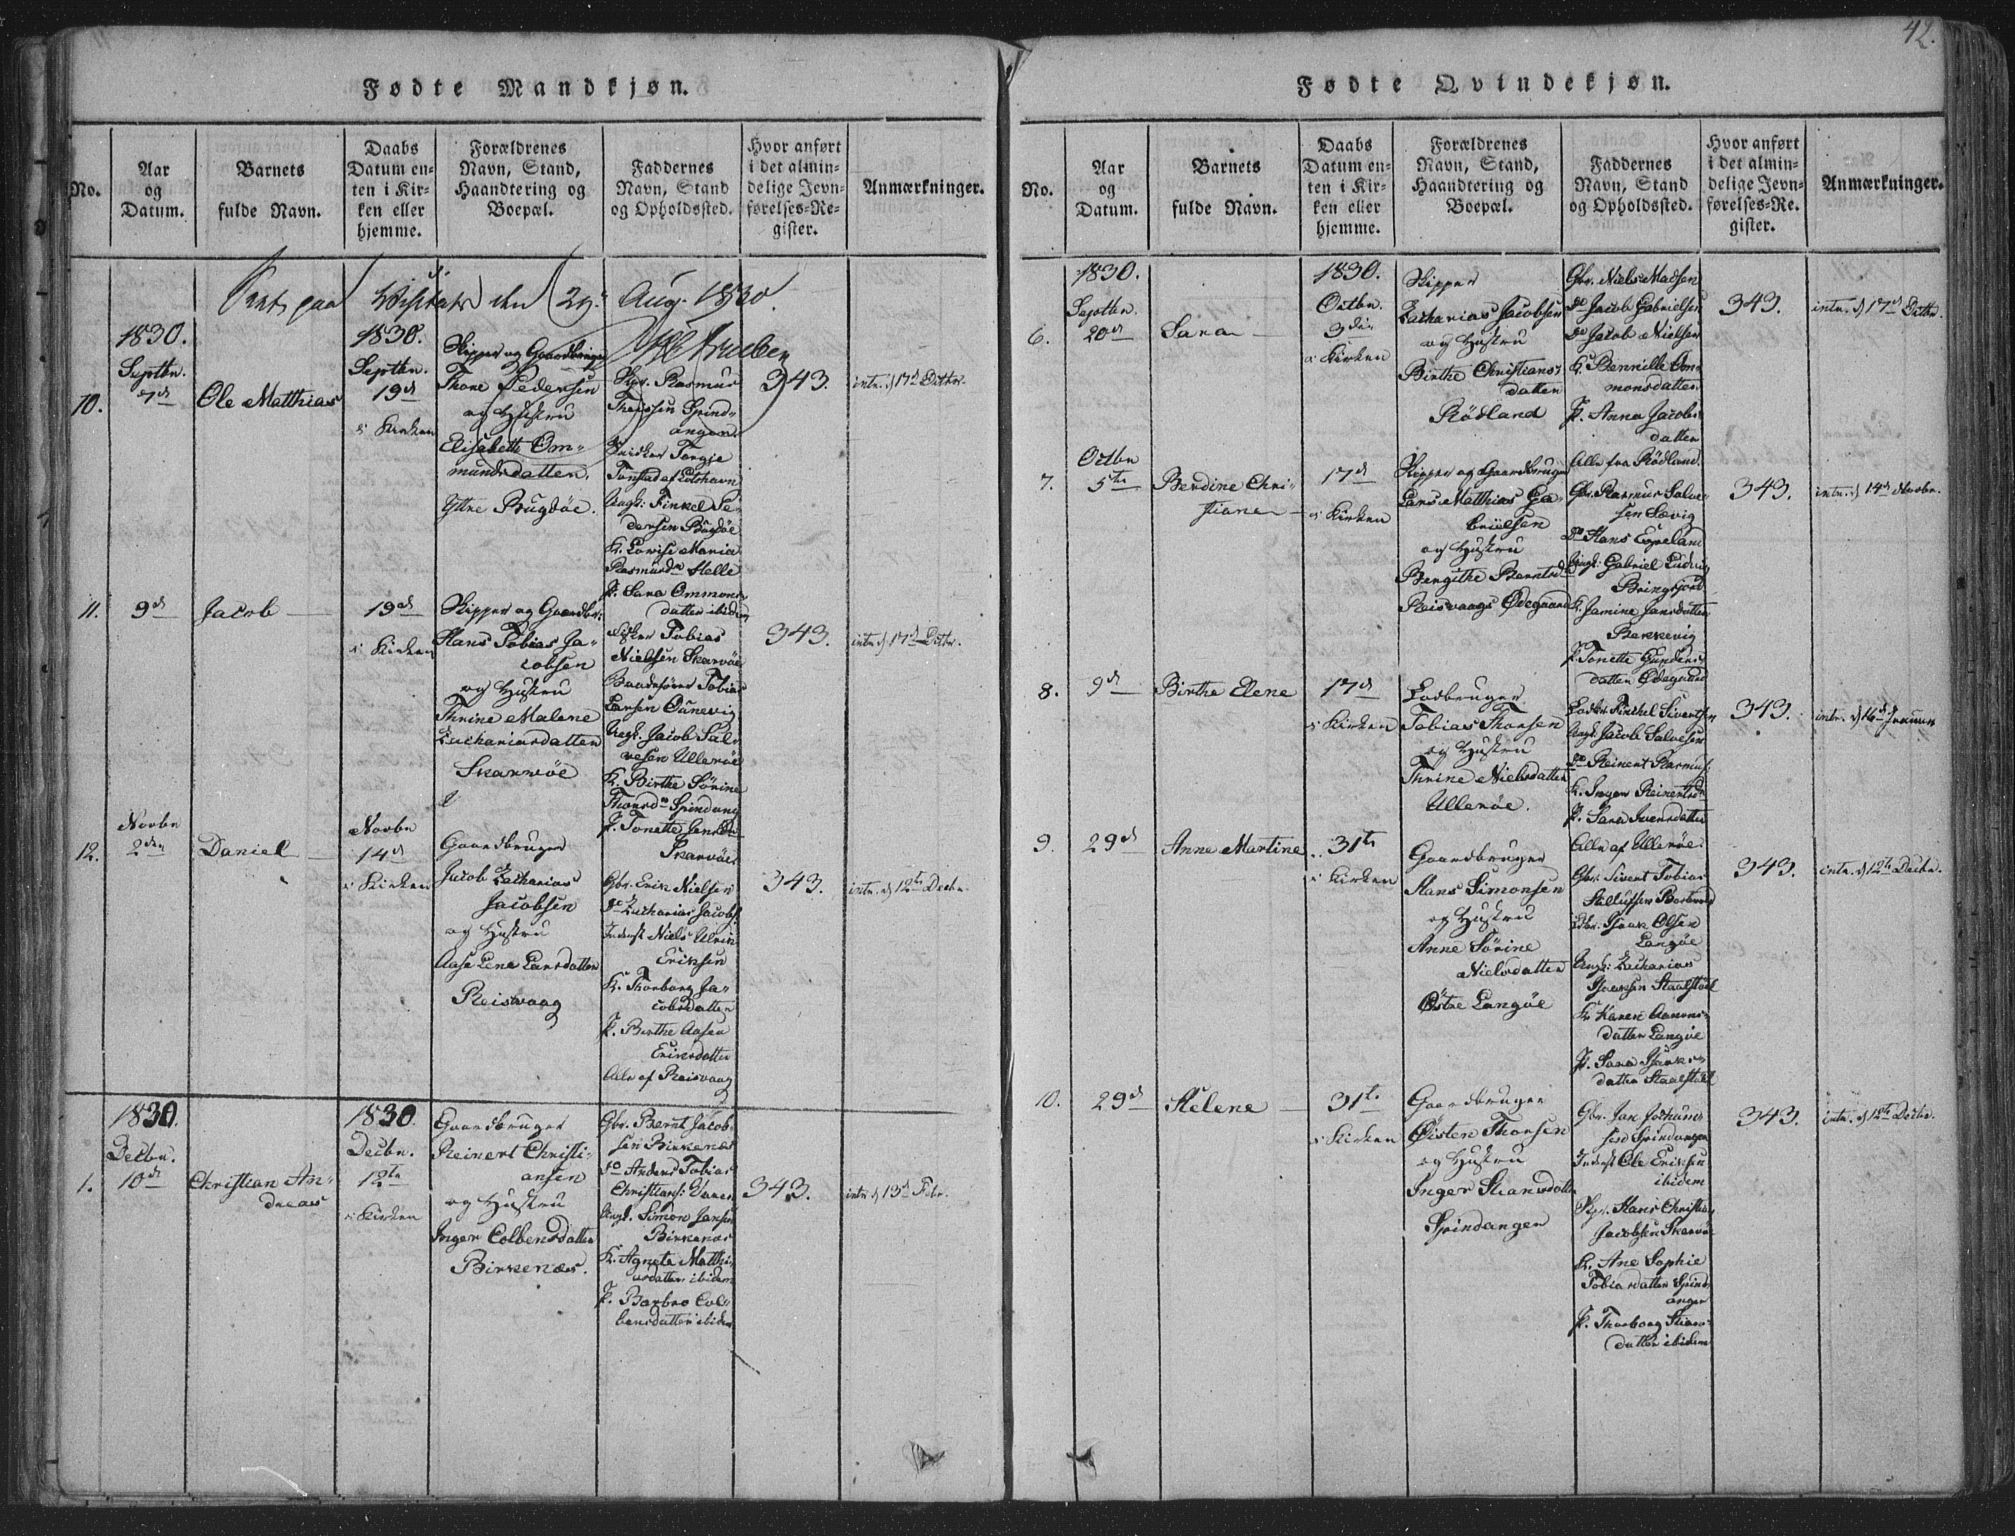 42.
Fødte Mandkjøn.
No.
Aar
og
Datum.
Barnets
fulde Navn.
Daabs
Datum en-
ten i Kir-
ken eller
hjemme.
Forældrenes
Navn, Stand,
Haandtering og
Boepæl.
Faddernes
Navn, Stand
og Opholdssted.
Hvor anført
i det almin-
delige Jevn-
førelses-Re-
gister.
Anmærkninger.
Seet paa Visitats den 29. Aug. 1830.
10.
1830.
Septbr.
7d
Ole Matthias
1830.
Septbr.
19d
i Kirken
Skipper og Gaardbruger
Thore Pedersen
og Hustru
Elisabeth Om-
mundsdatten.
Yttre Bugdøe.
Rasmus
Spind-
angen
Torgje
Tonstad af
Ungk. Finkel Pe-
dersen Bugdøe
K. Lovise Maria
Rasmusd. Helle
P. Sara Ommons-
datten ibidem
343.
intr. d 17d Octbr.
11.
9d
Jacob
19d
i Kirken
Skipper og Gaardbr.
Hans Tobias Ja-
cobsen
og Hustru
Thrine Malene
Zachariasdatten
Skarvøe
Tobias
Nielsen Skarvøe
Tobias
Larsen
Ungk. Jacob Sal-
vesen Ullerøe
K. Birthe Sørine
Thorsd. Spindang
P. Tonette Jensd.
Skarvøe
343.
intr. d 17d Octbr.
12.
Novbr
2den
Daniel
Novbr
14d
i Kirken
Gaardbruger
Jacob Zacharias
Jacobsen
og Hustru
Aase Lene Larsdatten
Reisvaag
Gbr. Erik Nielsen
do Zacharias Jacobs.
Niels Ulrik
Eriksen
K. Thorborg Ja-
cobsdatten
P. Birthe Aasen
Eriksdatten
Alle af Reisvaag
343.
intr. d 12te Decbr.
1.
1830.
Decbr.
10d
Christian An-
dreas
1830
Decbr.
12te
i Kirken
Gaardbruger
Reinert Christi-
ansen
og Hustru
Inger Colbensdatten
Birkenæs.
Gbr. Bernt Jacob-
sen Birkenæs
do Anders Tobias
Christians.
Ungk. Simon Jansen
Birkenæs
K. Agneta Matthi-
asdatten ibidem
P. Barbro Col-
bensdatten ibidem
343.
intr. d 13d Febr.
Fødte Qvindekjøn.
No.
Aar
og
Datum.
Barnets
fulde Navn.
Daabs
Datum en-
ten i Kir-
ken eller
hjemme.
Forældrenes
Navn, Stand,
Haandtering og
Boepæl.
Faddernes
Navn, Stand
og Opholdssted.
Hvor anført
i det almin-
delige Jevn-
førelses-Re.
gister.
Anmærkninger.
6.
1830.
Septbr.
20d
Sara
1830.
Octbr.
3die
i Kirken
Skipper
Zacharias Jacobsen
og Hustru
Birthe Christians-
datten
Rødland
Gbr. Niels Madsen
do Jacob Gabrielsen
do Jacob Nielsen
K. Bennille Om-
monsdatten
P. Anna Jacobs-
datten
Alle fra Rødland.
343.
intr. d 17d Octbr.
7.
Octbr
5te
Berdine Chri-
stiane
17d
i Kirken
Skipper og Gaardbruger
Lars Matthias Ga-
brielsen
og Hustru
Bergithe Berntsd.
Reisvaags Ødegaard
Gbr. Rasmus Salve-
sen Sævig
do Hans Espeland
Ungk. Gabriel Ludvig
Bringsjord
K. Jamine Jansdatten
Bekkevig
P. Tonette Gunders-
datten Ødegaard
343.
intr. d 14d Novbr.
8.
9d
Birthe Elene
17d
i Kirken
Lodbruger
Tobias Thorsen
og Hustru
Thrine Nielsdatten
Ullerøe.
Lodbr. Sivertsen
Ungk. Jacob Salvesen
do Reinert Rasmus.
K. Inger Reinertsd.
P. Sara Iversdatten
Alle af Ullerøe.
343.
9.
29d
Anne Martine
31te
i Kirken
Gaardbruger
Hans Simonsen
og Hustru
Anne Sørine
Nielsdatten
Østre Langøe
Gbr. Sivert Tobias
Olsen
Langøe
Ungk. Zacharias
Isaksen Staalstøel
K. Karen Aanons-
datten Langøe
P. Sara Isaks-
datten Staalstøel
343.
intr. d 12te Decbr.
10.
29d
Helene
31te
i Kirken
Gaardbruger
Øisten Thorsen
og Hustru
Inger Stiansdatten
Spindangen
Gbr. Jan Jochum-
sen Spindangen
Ole Eriksen
ibidem
Hans Christian
Jacobsen Skarvøe
K. Ane Sophie
Tobiasdatten Spind-
angen
P. Thorborg Stians-
datten ibidem
343.
intr. d 12te Decbr.